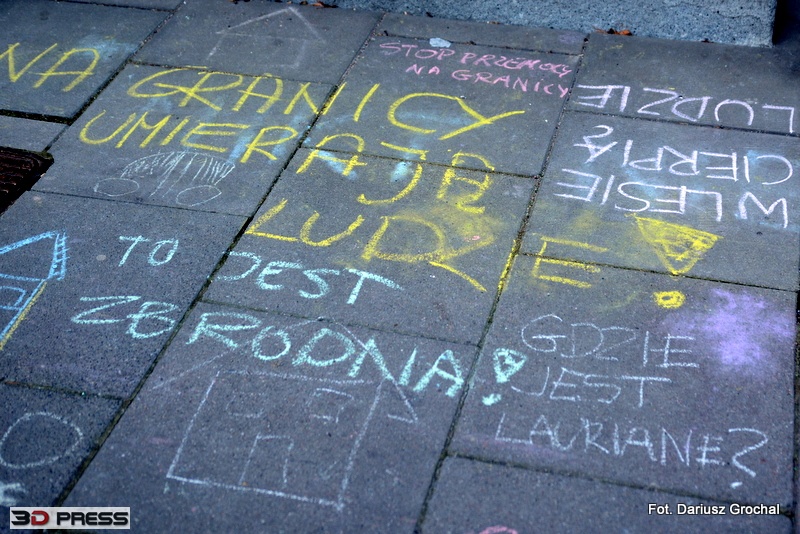 STOP PRZEMOCY
NA GRANICY
NA GRANICY
UMIERAJĄ
LUDZIE!
LUDZIE
CIERPIĄ
W LESIE
TO JEST
ZBRODNIA!
GDZIE
JEST
LAURIANE?
3D PRESS
Fot. Dariusz Grochal